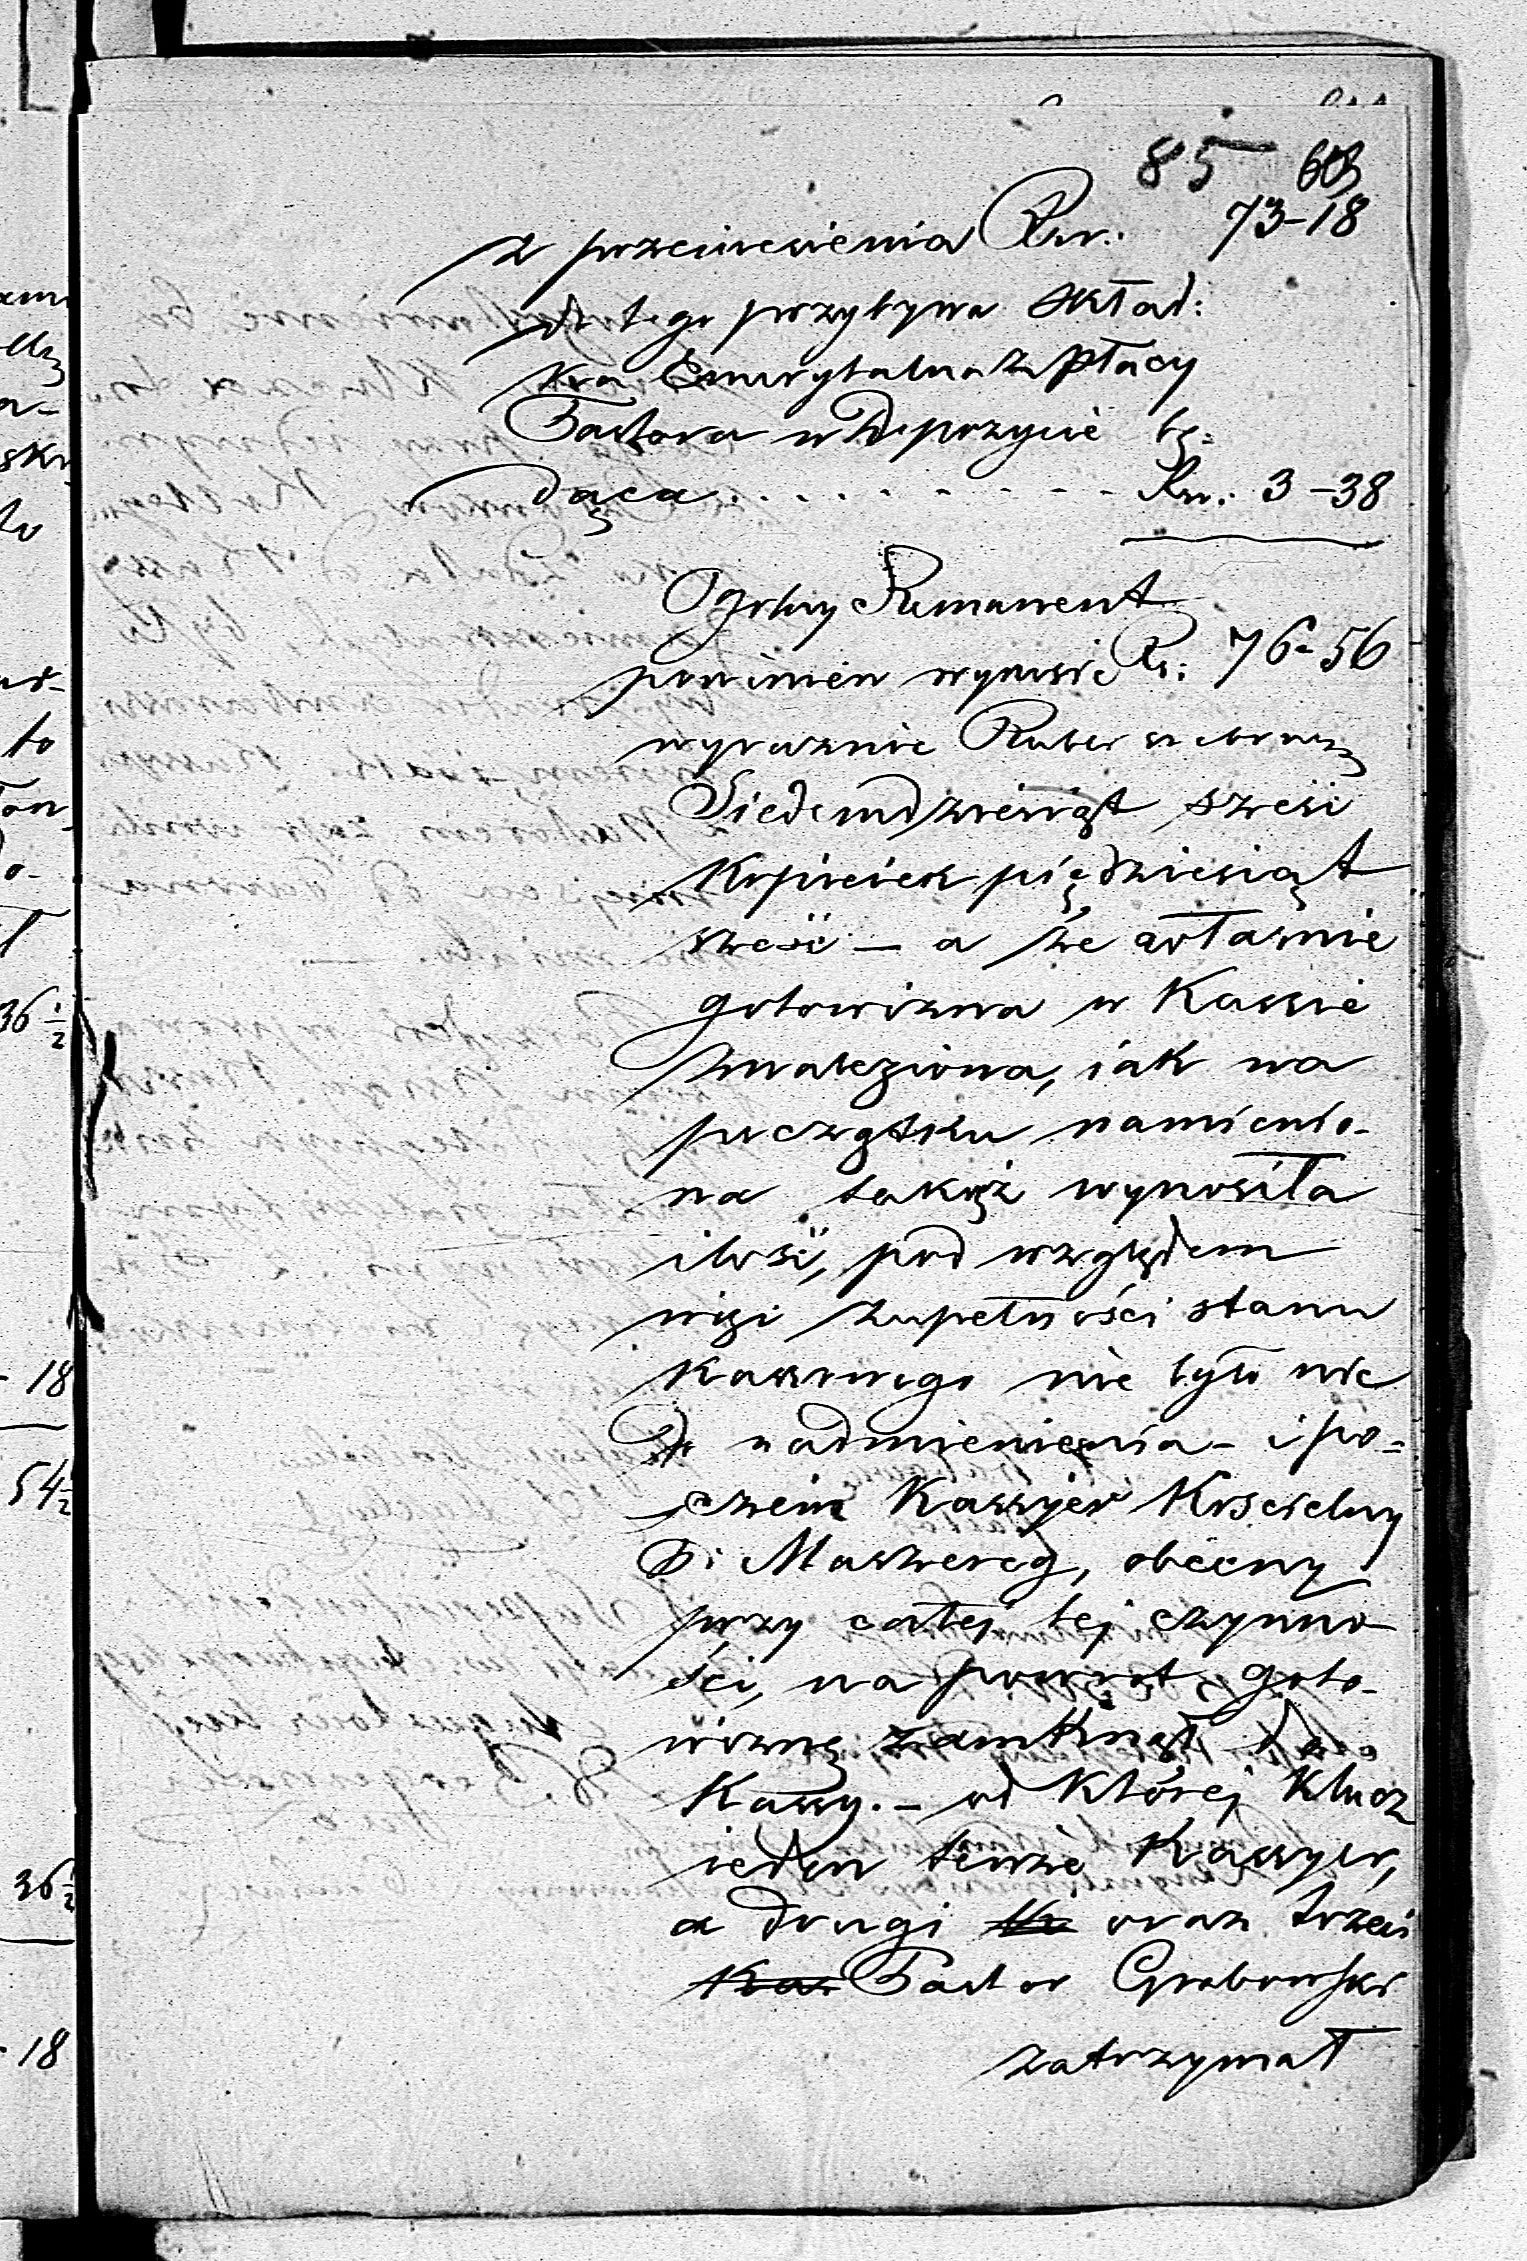 85 603
z przeniesienia Rsr. 73-18
do tego przybywa skład:
ka Emerytalna z płacy
Pastora w Depozycie bę=
dąca . . . . . . . . . . Rsr. 3-38
Ogólny Remanent
powinien wynosić Rs: 76-56
wyraznie Rubli srebrem
Siedemdziesiąt sześć
Kopieiek piędziesiąt
sześć — a że własnie
gotowizna w Kassie
znaleziona, iak na
początku namienio-
na takąż wynosiła
ilość, pod względem
więc zupełności stanu
kassowego nie było nic
do nadmienienia — i po=
czem Kassyer Kościelny
P: Maszwereg, obecny
przy całej tej czynno
ści, na powrót goto-
wiznę zamknął do
Kassy. — od której klucz
ieden tenże Kassyer,
a drugi oraz trzeci
Kas Pastor Grabowski
zatrzymał
36 1/2
- 18
54 1/2
36 1/2
- 18